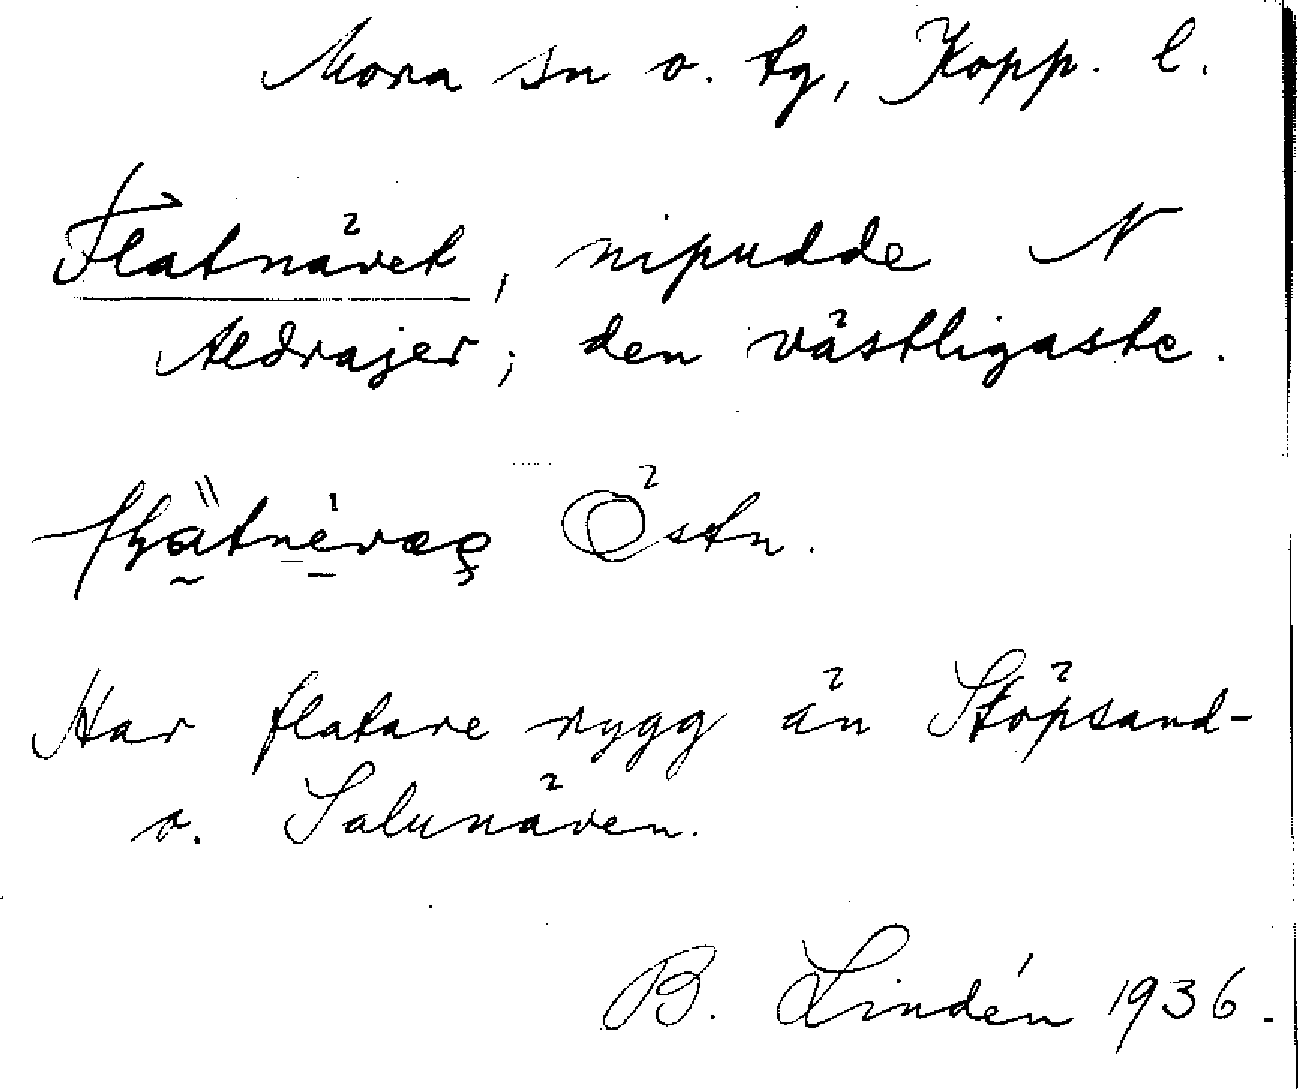 Mora sn o. tg, Kopp. l.
Flatnävet, nipudde N
Aldrajer; den västligaste.
Östn.
Har flatare rygg än Stöpsand-
o. Salunäven.
B. Lindén 1936.